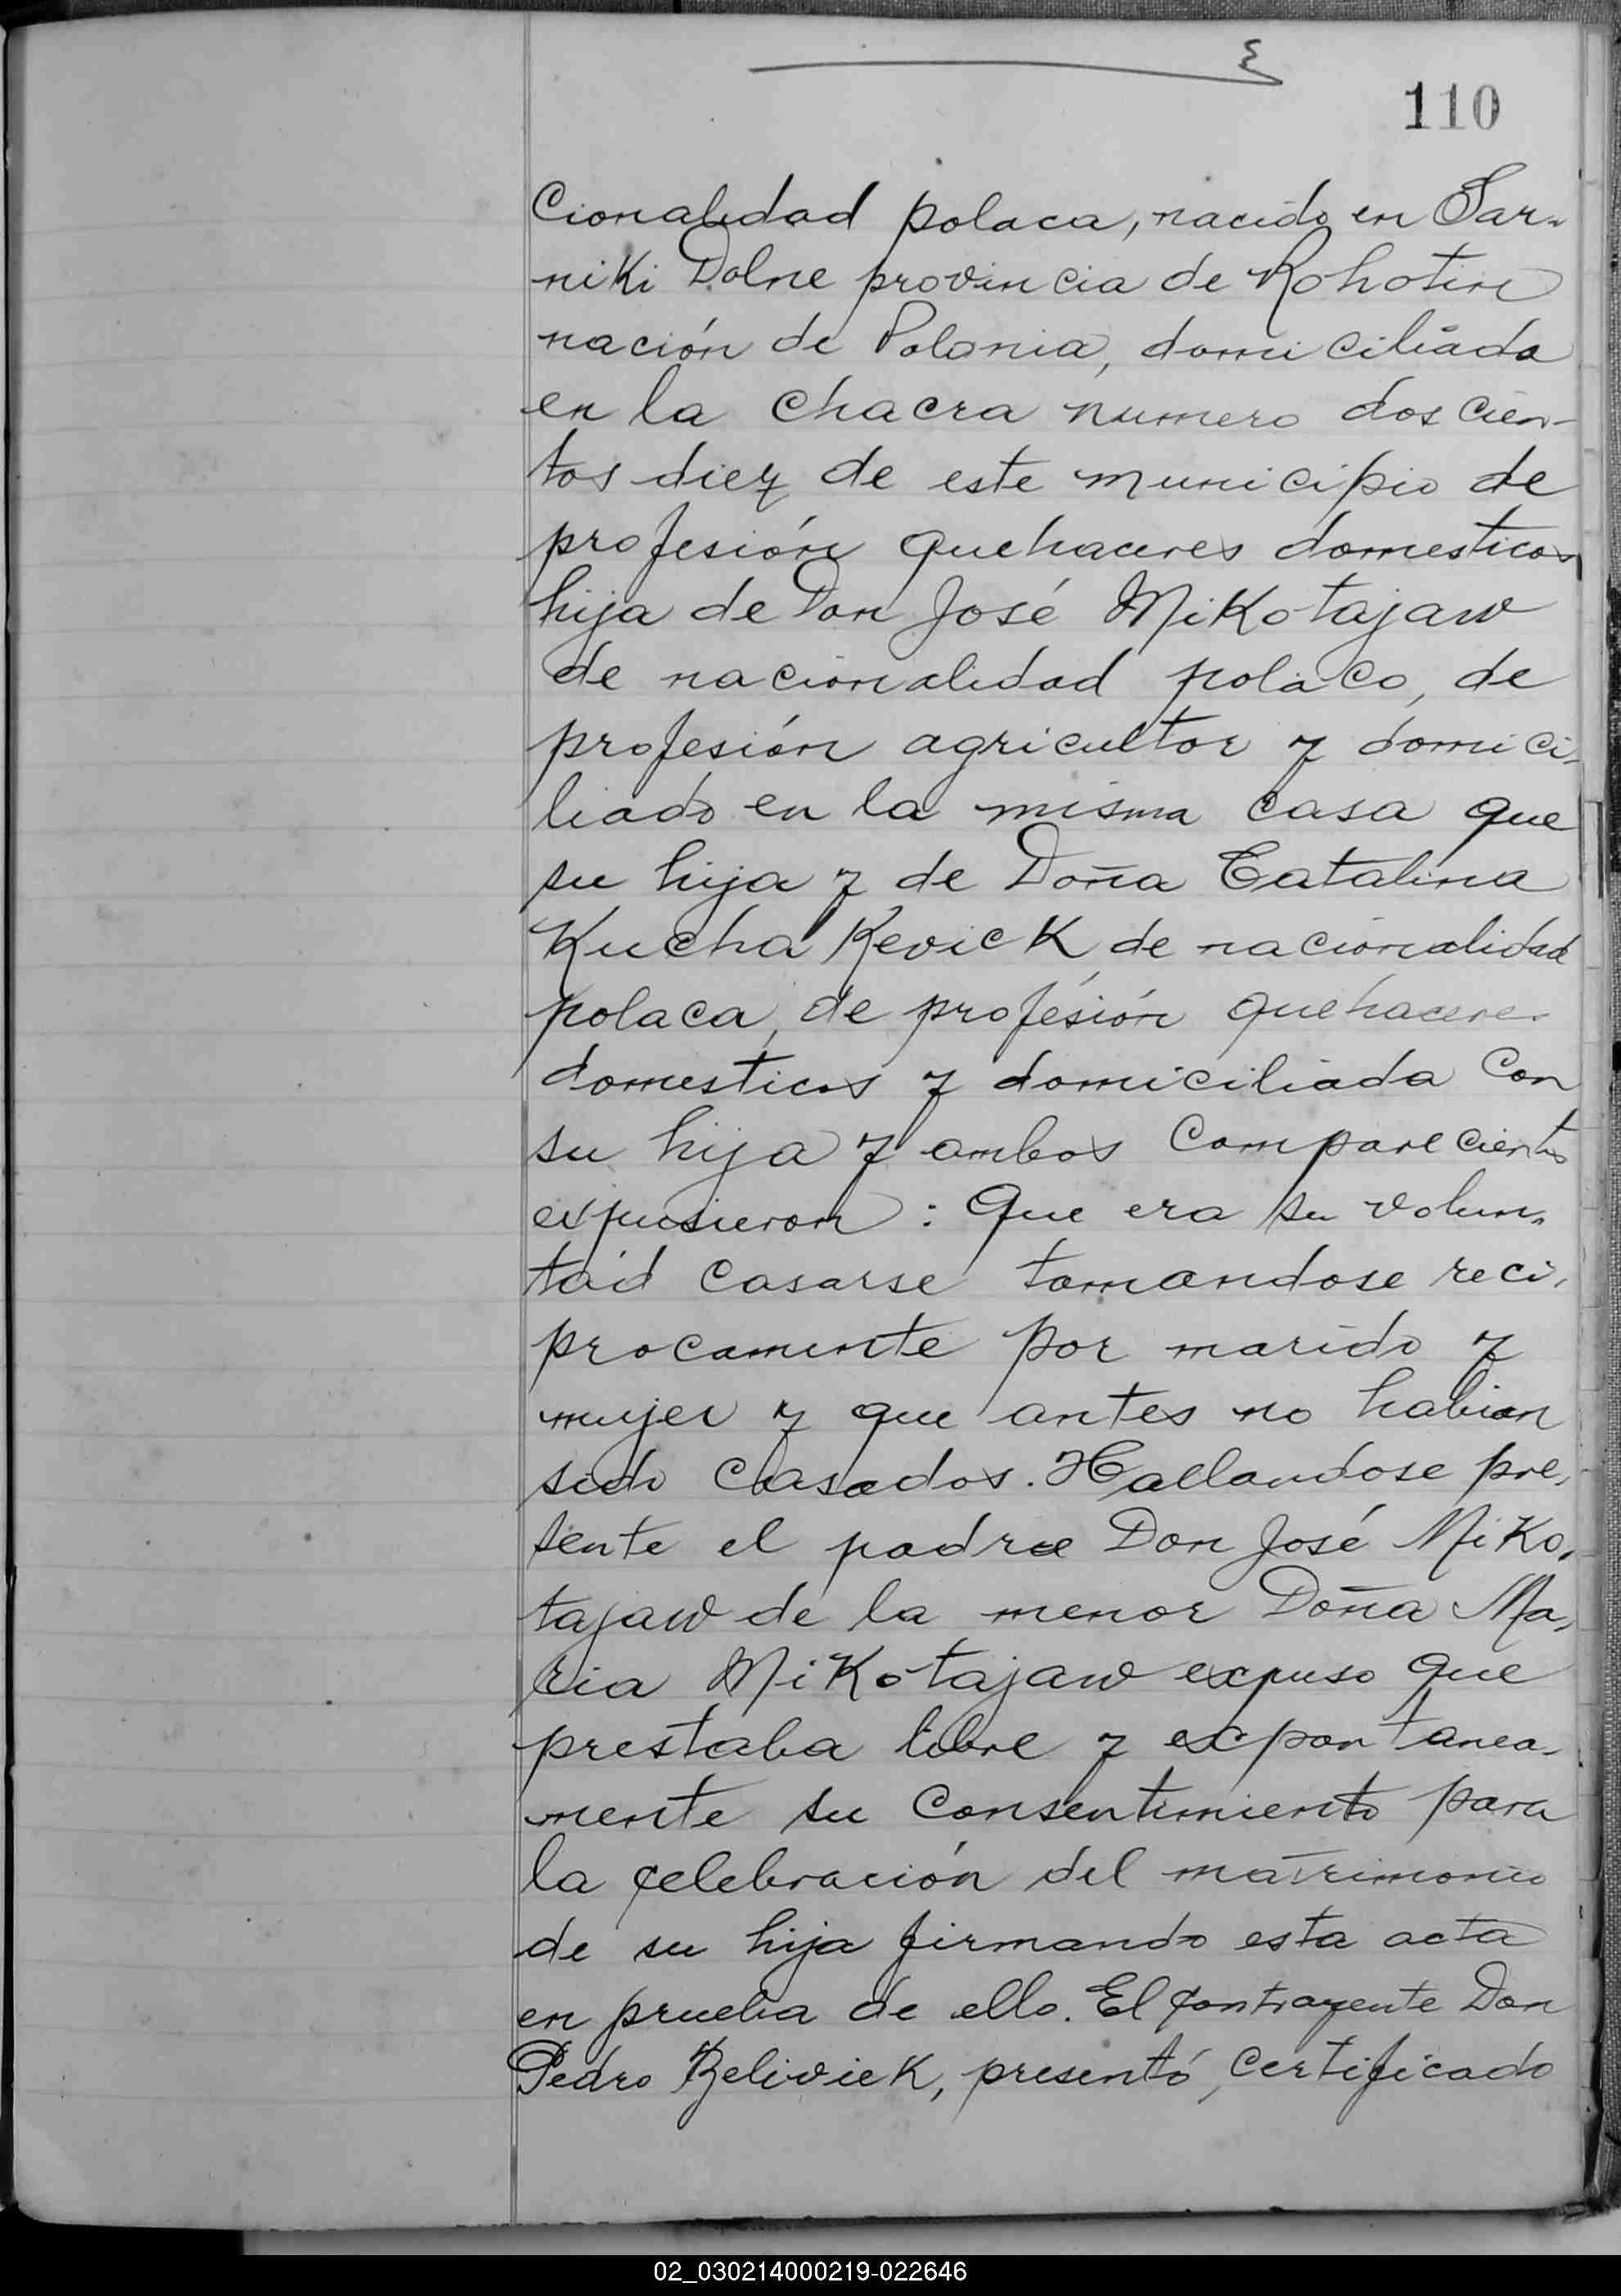 110
cionalidad polaca, nacido en Sar-
niki Dolne provincia de Rohotin
nación de Polonia, domiciliada
en la chacra numero doscien-
tos diez de este municipio de
profesión quehaceres domesticos
hija de Don José Mikotajaw
de nacionalidad polaco, de
profesión agricultor y domici-
liado en la misma casa que
su hija y de Doña Catalina
Kucha Kevick de nacionalidad
polaca, de profesión quehaceres
domesticos y domiciliada con
su hija y ambos comparecientes
expusieron: Que era su volun-
tad casarse tomandose reci-
procamente por marido y
mujer y que antes no habian
sido casados. Hallandose pre-
sente el padre Don José Miko-
tajaw de la menor Doña Ma-
ria Mikotajaw expuso que
prestaba libre y expontanea-
mente su consentimiento para
la celebración del matrimonio
de su hija firmando esta acta
en prueba de ello. El contrayente Don
Pedro Zeliviek, presentó, certificado
02_030214000219-022646